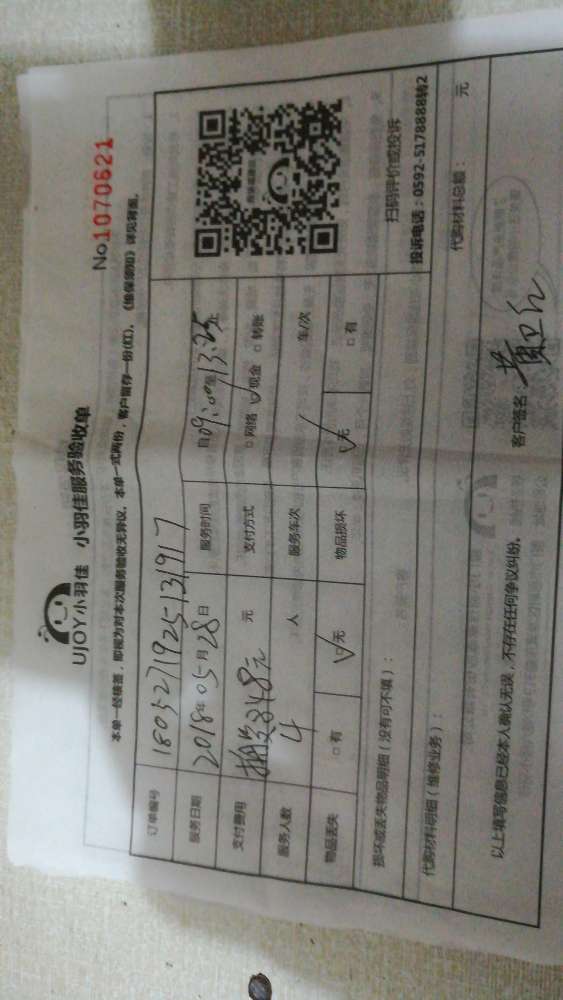 UJOY小羽佳 小羽佳服务验收单
No 1070621
本单一经核签，即视为对本次服务验收无异议，本单一式两份，客户留存一份(红)，《维保须知》详见背面。
订单编号 180527192513191 7
服务日期 2018年05月28日 服务时间 自09:00至13:25止
支付费用 348元 元 支付方式 □网络 ☑现金 □转账
服务人数 4 人 服务车次 车/次
物品丢失 □有 ☑无 物品损坏 ☑无 □有
扫码评价或投诉
投诉电话：0592-5178888转2
损坏或丢失物品明细（没有可不填）：
代购材料明细（维修业务）： 代购材料总额： 元
以上填写信息已经本人确认无误，不存在任何争议纠纷。 客户签名：黄卫红